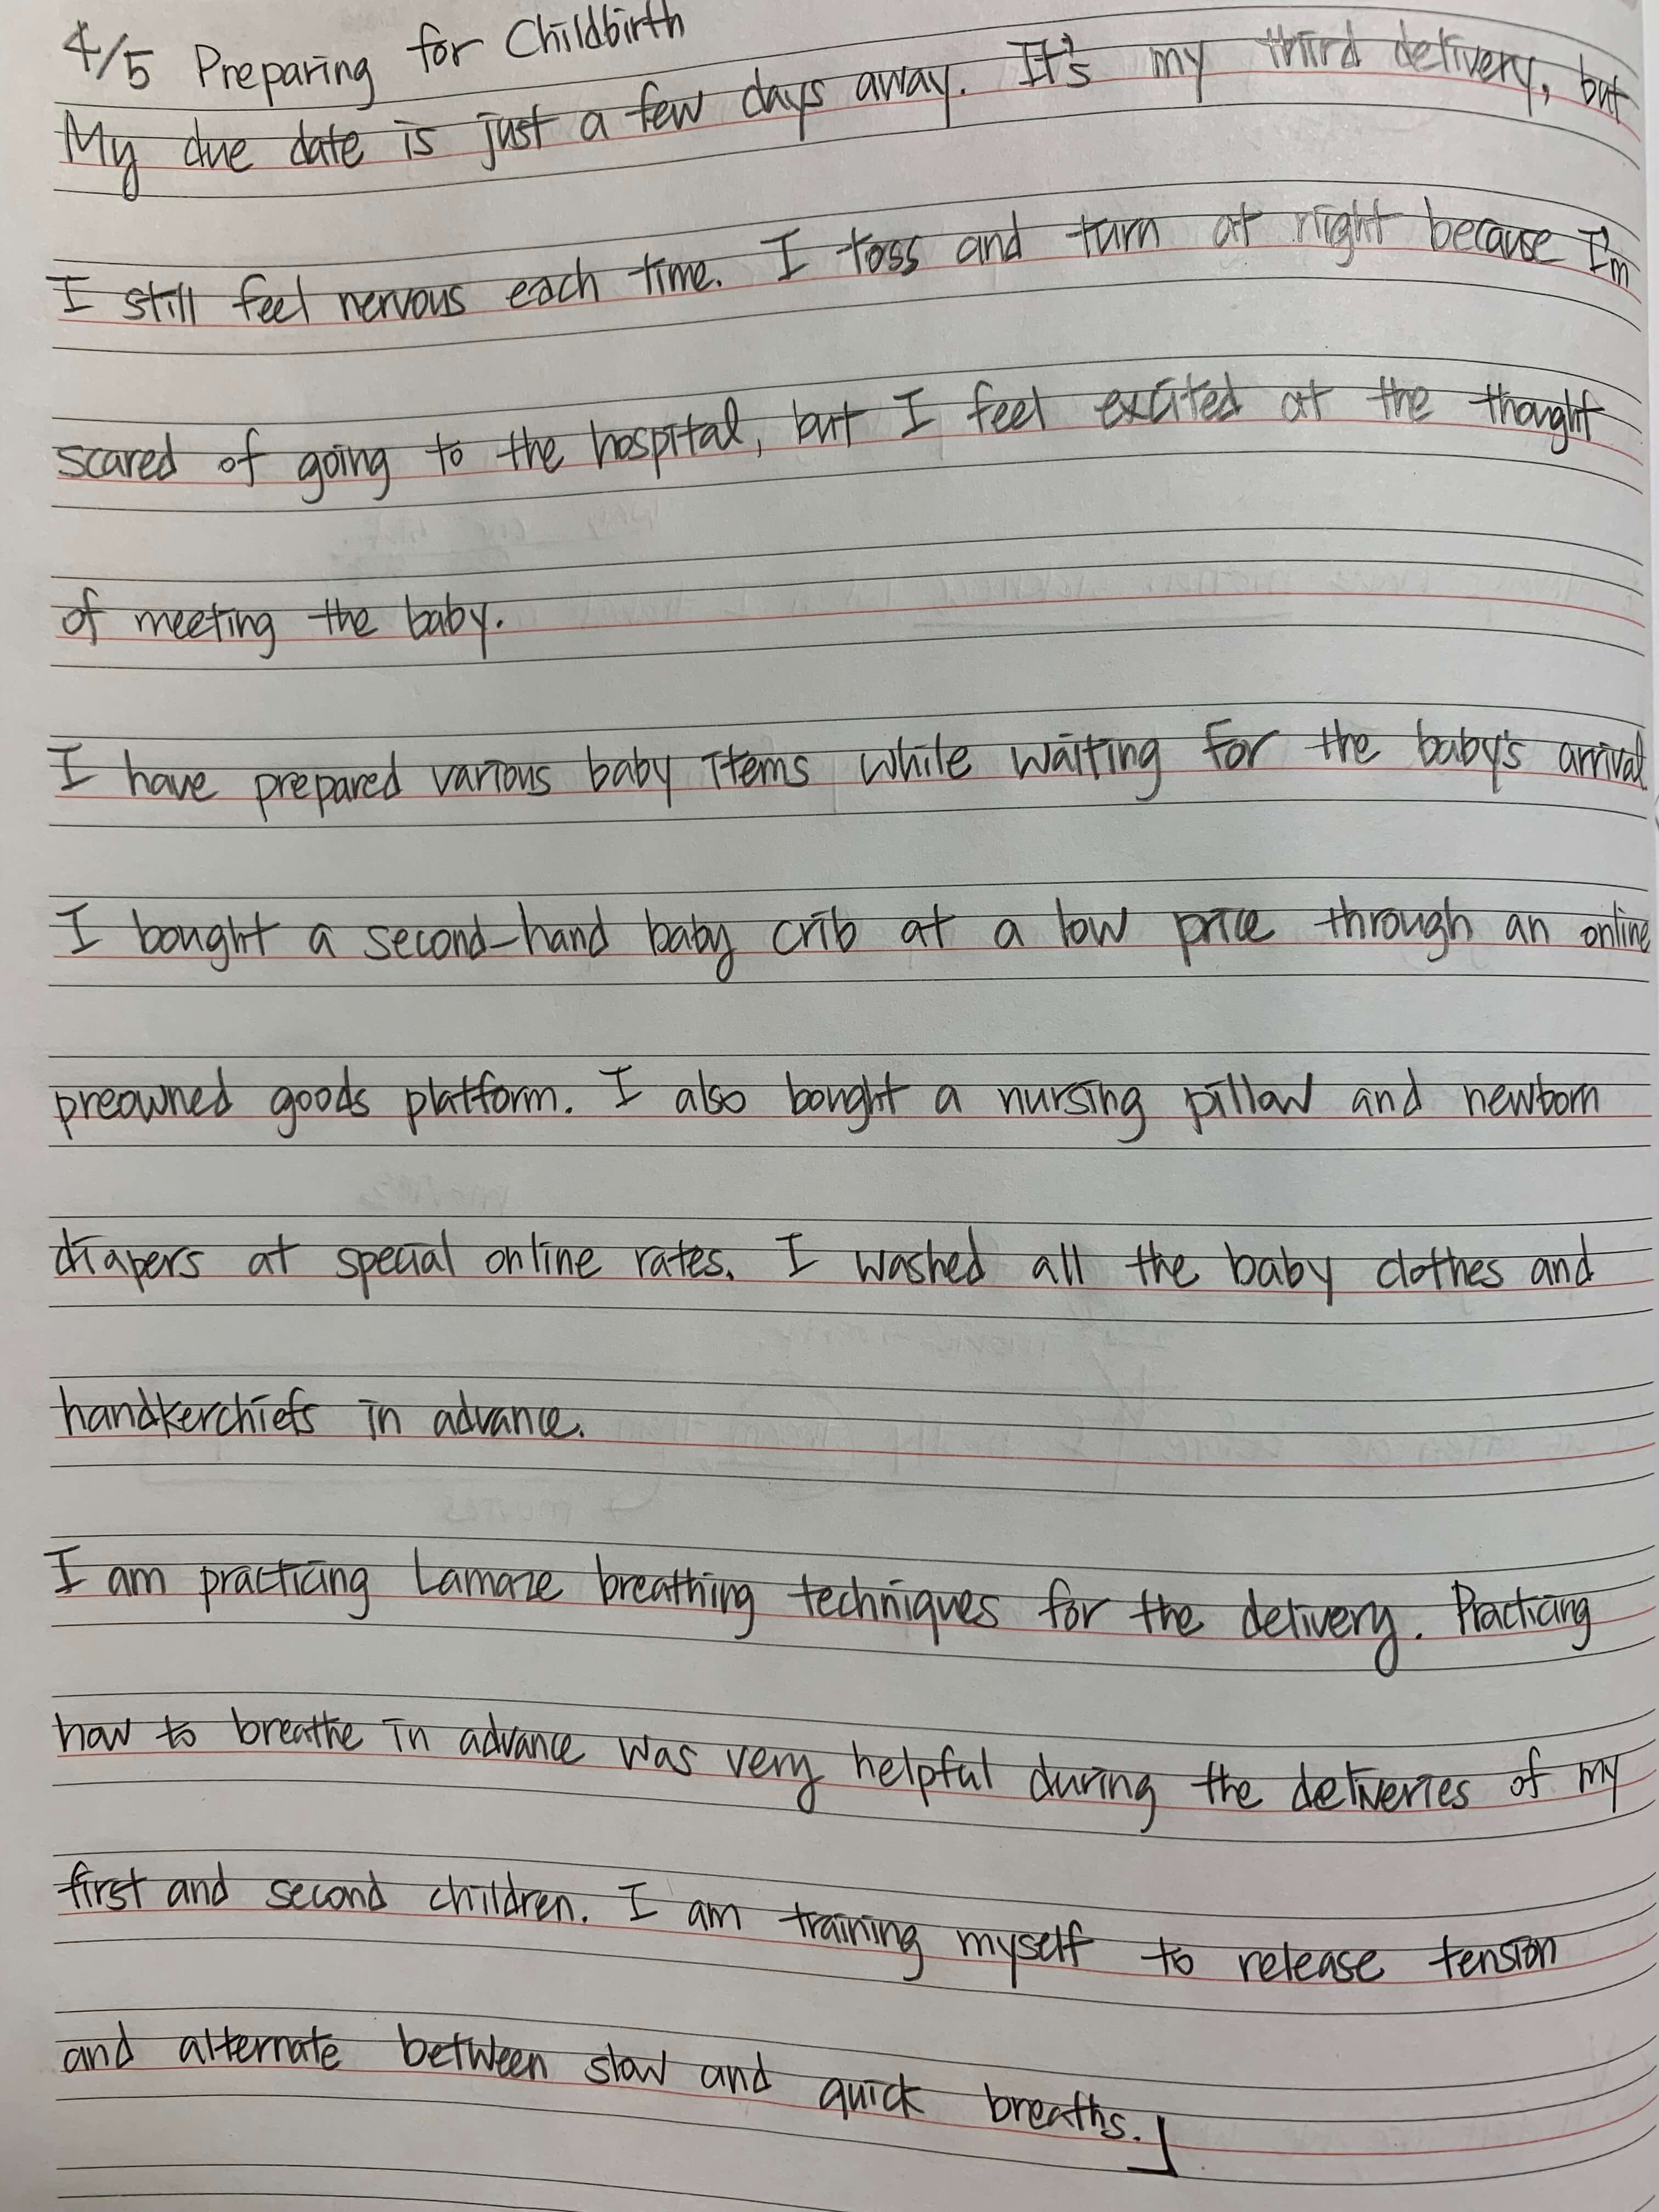 4/5 Preparing for Childbirth
My due date is just a few days away. It's my third delivery, but
I still feel nervous each time. I toss and turn at night because I'm
scared of going to the hospital, but I feel excited at the thought
of meeting the baby.
I have prepared various baby items while waiting for the baby's arrival
I bought a second-hand baby crib at a low price through an online
preowned goods platform. I also bought a nursing pillow and newborn
diapers at special online rates. I washed all the baby clothes and
handkerchiefs in advance.
I am practicing Lamaze breathing techniques for the delivery. Practicing
how to breathe in advance was very helpful during the deliveries of my
first and second children. I am training myself to release tension
and alternate between slow and quick breaths.」